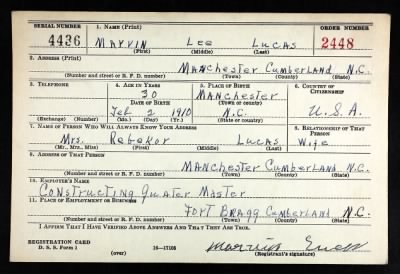 SERIAL NUMBER 1. NAME (Print) ORDER NUMBER
4436 Marvin Lee Lucas 2448
(First) (Middle) (Last)
2. ADDRESS (Print)
Manchester Cumberland N.C.
(Number and street or R. F. D. number) (Town) (County) (State)
3. TELEPHONE 4. AGE IN YEARS 5. PLACE OF BIRTH 6. COUNTRY OF CITIZENSHIP
30 Manchester
DATE OF BIRTH (Town or county)
Feb 2 1910 N.C. U.S.A.
(Exchange) (Number) (Mo.) (Day) (Yr.) (State or country)
7. NAME OF PERSON WHO WILL ALWAYS KNOW YOUR ADDRESS 8. RELATIONSHIP OF THAT PERSON
Mrs. Rebekor Lucas Wife
(Mr., Mrs., Miss) (First) (Middle) (Last)
9. ADDRESS OF THAT PERSON
Manchester Cumberland N.C.
(Number and street or R. F. D. number) (Town) (County) (State)
10. EMPLOYER'S NAME
Constructing Quater Master
11. PLACE OF EMPLOYMENT OR BUSINESS
Fort Bragg Cumberland N.C.
(Number and street or R. F. D. number) (Town) (County) (State)
I AFFIRM THAT I HAVE VERIFIED ABOVE ANSWERS AND THAT THEY ARE TRUE.
REGISTRATION CARD
D. S. S. Form 1 16—17105
(over) (Registrant's signature)